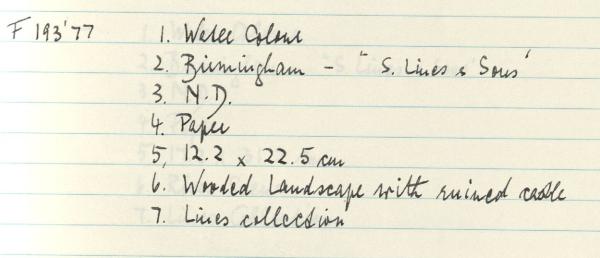 F 193'77 1. Water Colour
2. Birmingham - "S. Lines & Sons'
3. N.D.
4. Paper
5, 12.2 x 22.5 cm
6. Wooded Landscape with ruined castle
7. Lines collection